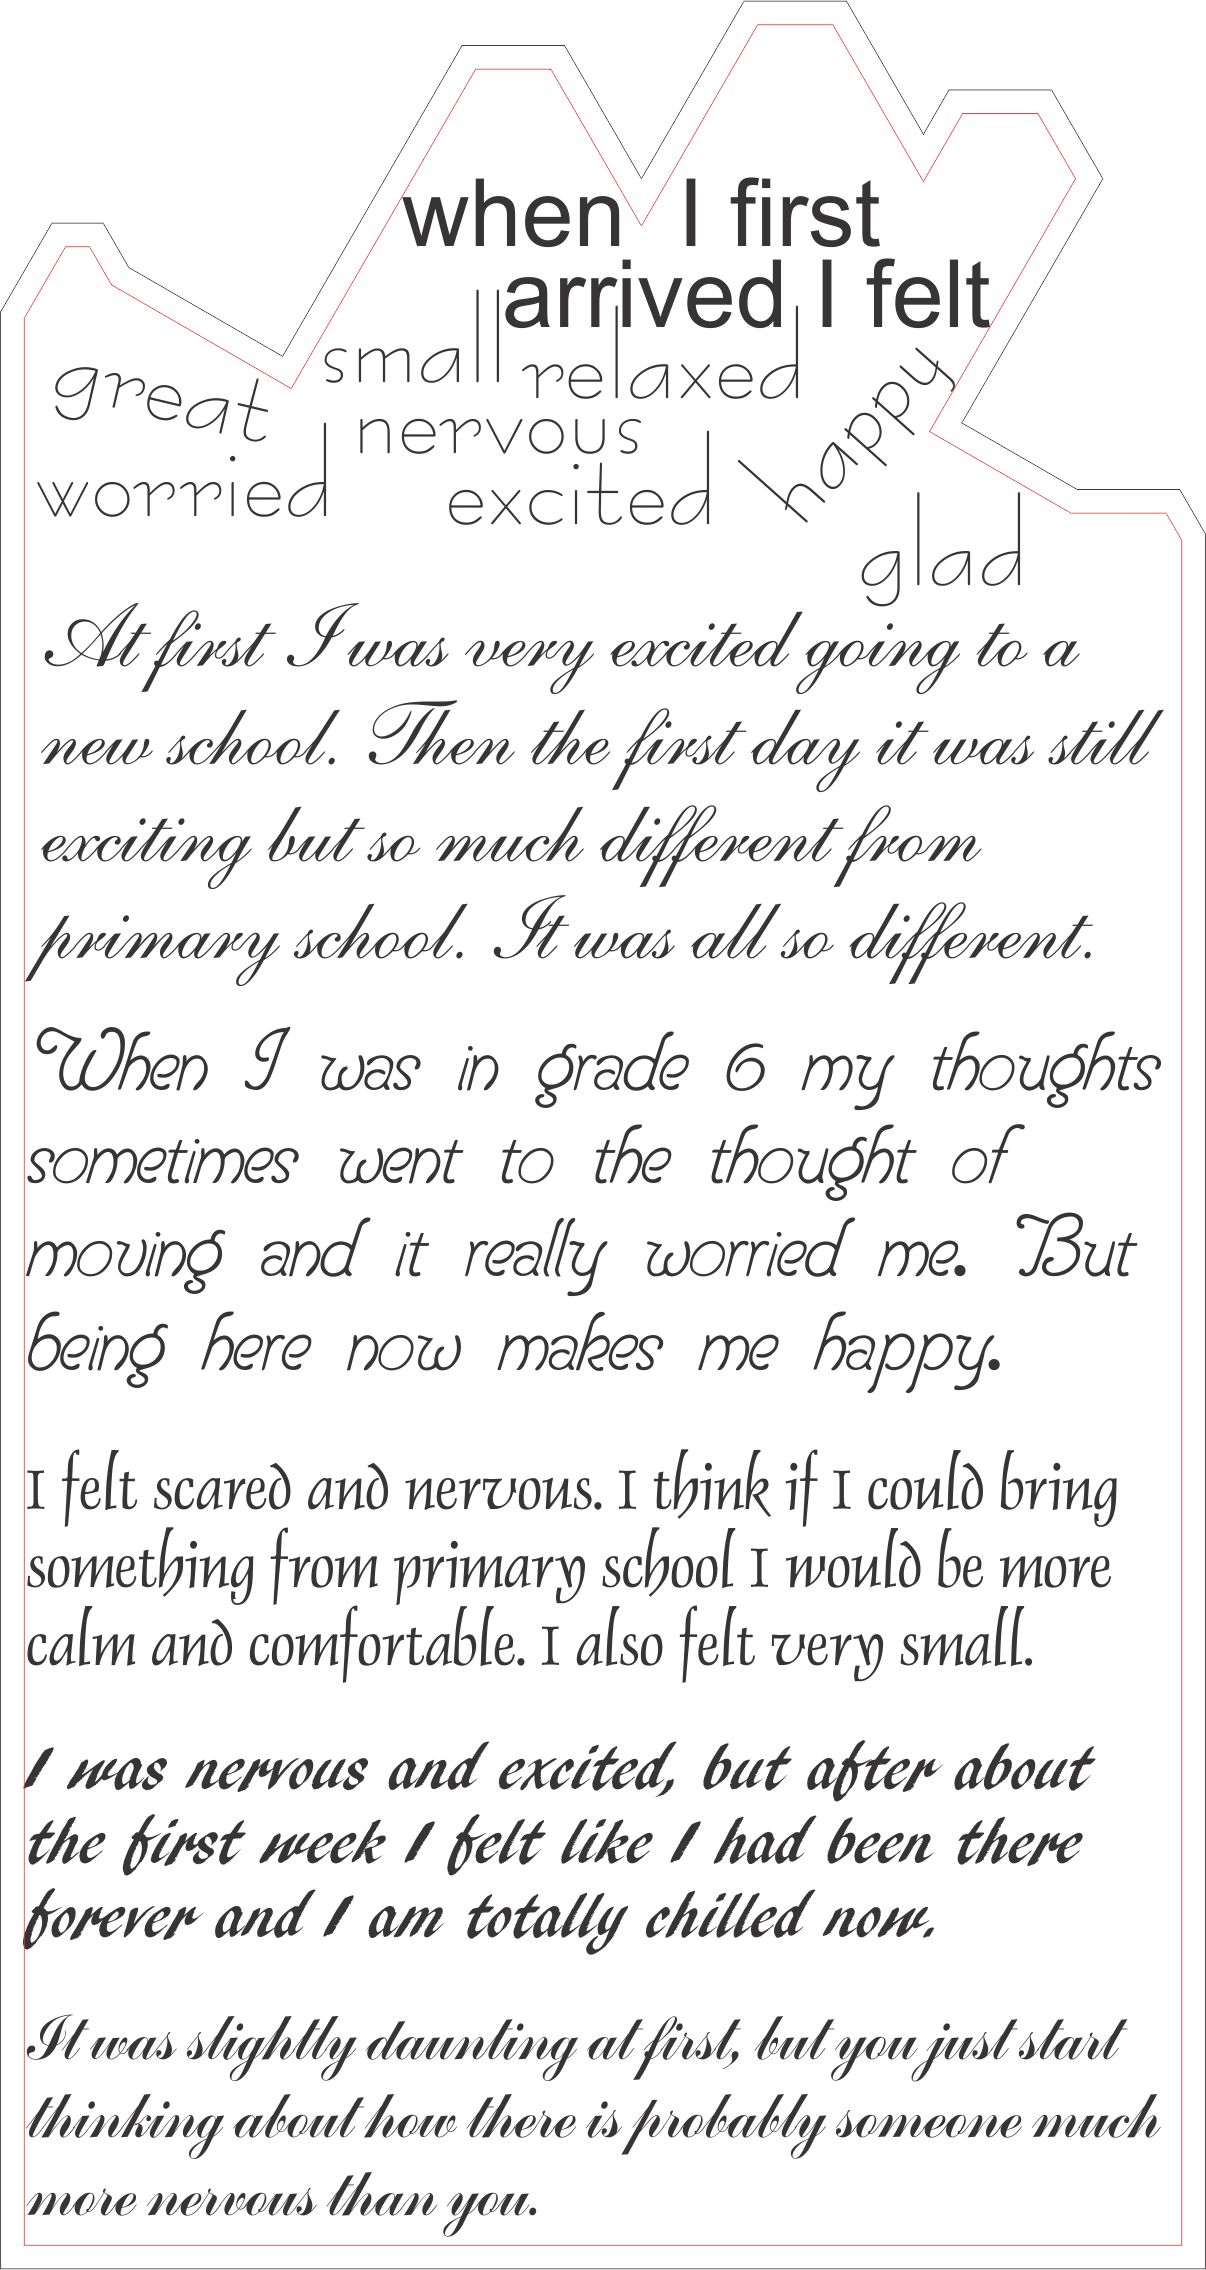 when I first
arrived I felt
small relaxed
great
nervous
happy
worried
excited
glad
At first I was very excited going to a
new school. Then the first day it was still
exciting but so much different from
primary school. It was all so different.
When I was in grade 6 my thoughts
sometimes went to the thought of
moving and it really worried me. But
being here now makes me happy.
I felt scared and nervous. I think if I could bring
something from primary school I would be more
calm and comfortable. I also felt very small.
I was nervous and excited, but after about
the first week I felt like I had been there
forever and I am totally chilled now.
It was slightly daunting at first, but you just start
thinking about how there is probably someone much
more nervous than you.